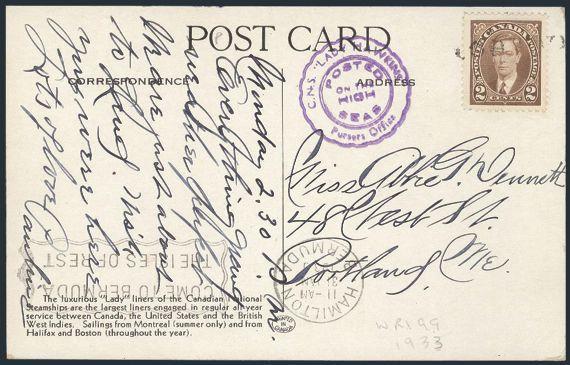 POST CARD
CORRESPONDENCE
ADDRESS
POSTES CANADA POSTAGE
2 CENTS 2
C.N.S. "LADY HAWKINS"
POSTED
ON THE
HIGH
SEAS
Pursers Office
Sunday 2.30 P.M.
Everything going
weather fine
We are just about
to land. Wish
you were here
Lots of love
Miss Abbie G. Dennett
48 West St.
Portland, Me.
HAMILTON
11-AM
BERMUDA
COME TO BERMUDA
THE ISLES OF REST
The luxurious "Lady" liners of the Canadian National
Steamships are the largest liners engaged in regular all-year
service between Canada, the United States and the British
West Indies. Sailings from Montreal (summer only) and from
Halifax and Boston (throughout the year).
PRINTED IN CANADA
1933